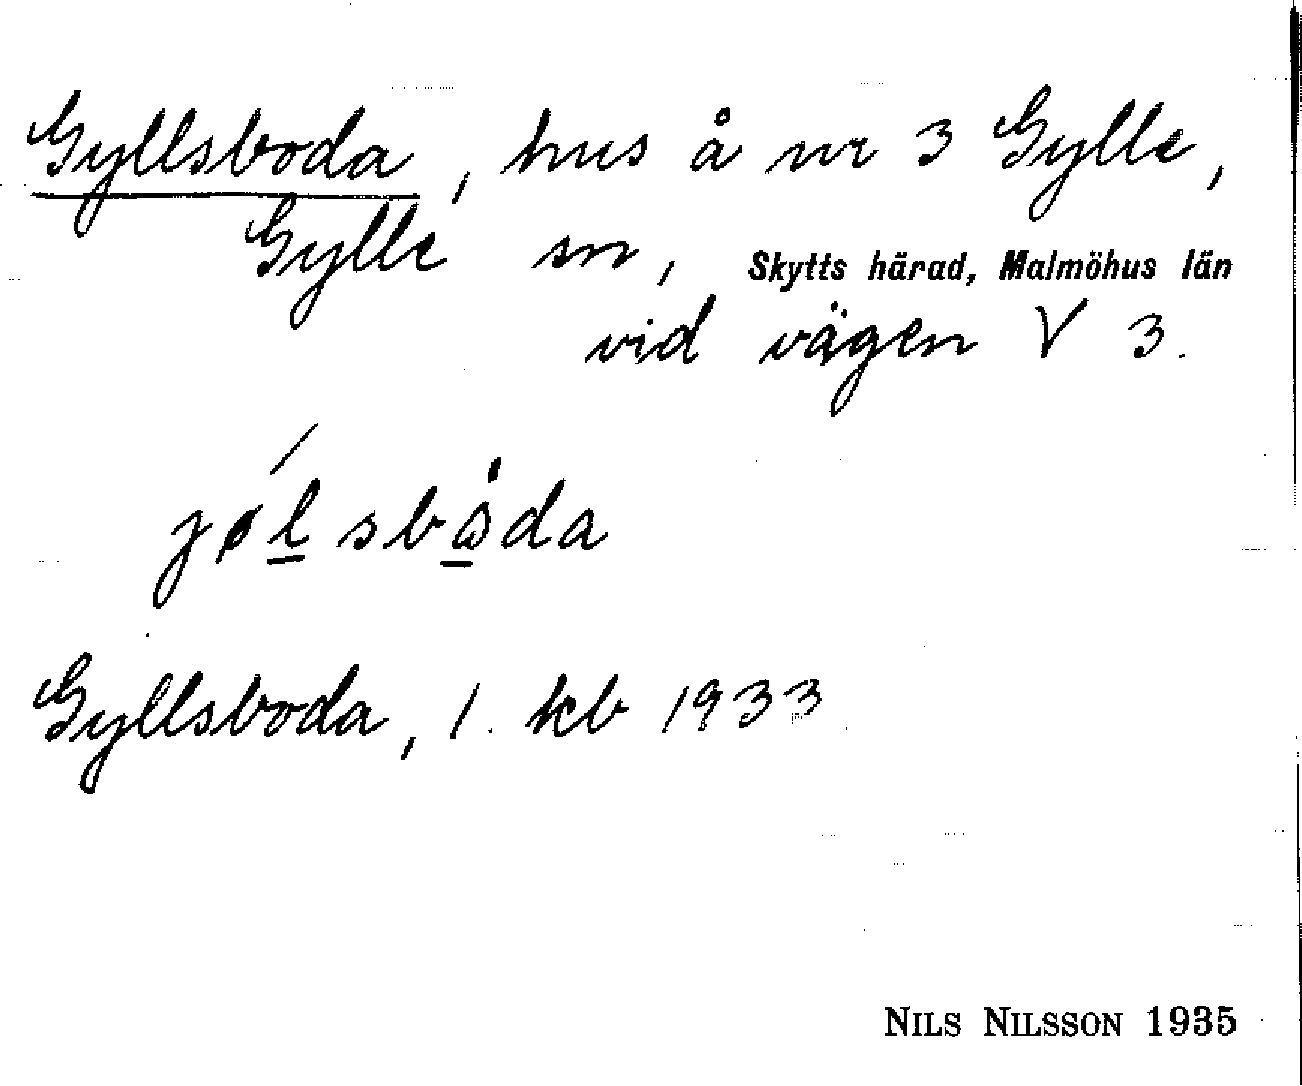 Gyllsboda, hus å nr 3 Gylle,
Gylle sn, Skytts härad, Malmöhus län
vid vägen V 3.
jøl̲sbω̲da
Gyllsboda, 1. kb 1933
NILS NILSSON 1935